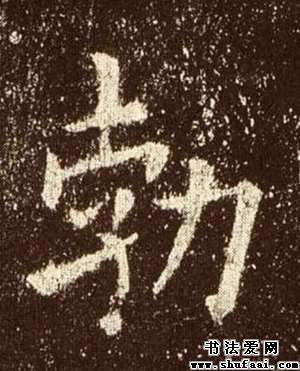 勃
书法爱网
www.shufaai.com